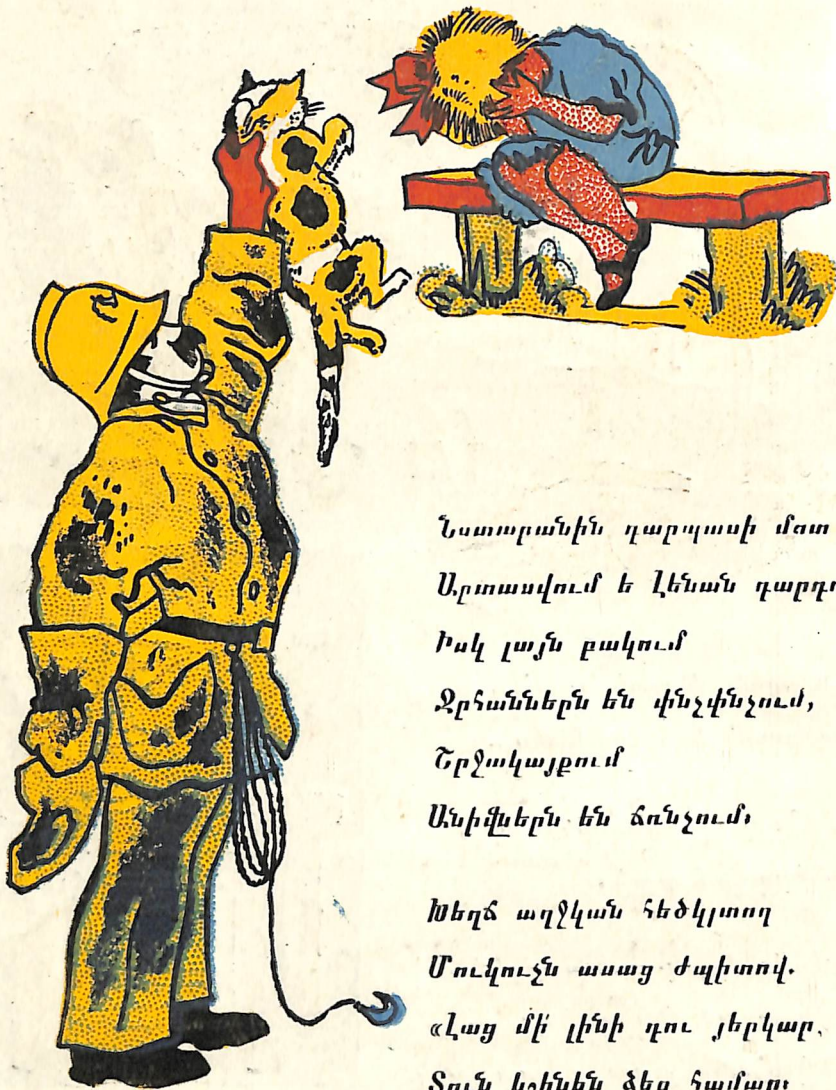 Նստարանին դարպասի մոտ
Արտասվում ե Լենան
Իսկ լայն բակում
Ձիաններն են փնչփնչում,
Շրջակայքում
Անիվներն են ճռնչում։
Խեղճ աղջկան հեծկլտող
Մուկուչն ասաց ժպիտով.
«Լաց մի՛ լինի դու յերկար,
Տուն կշինեն ձեզ համար։